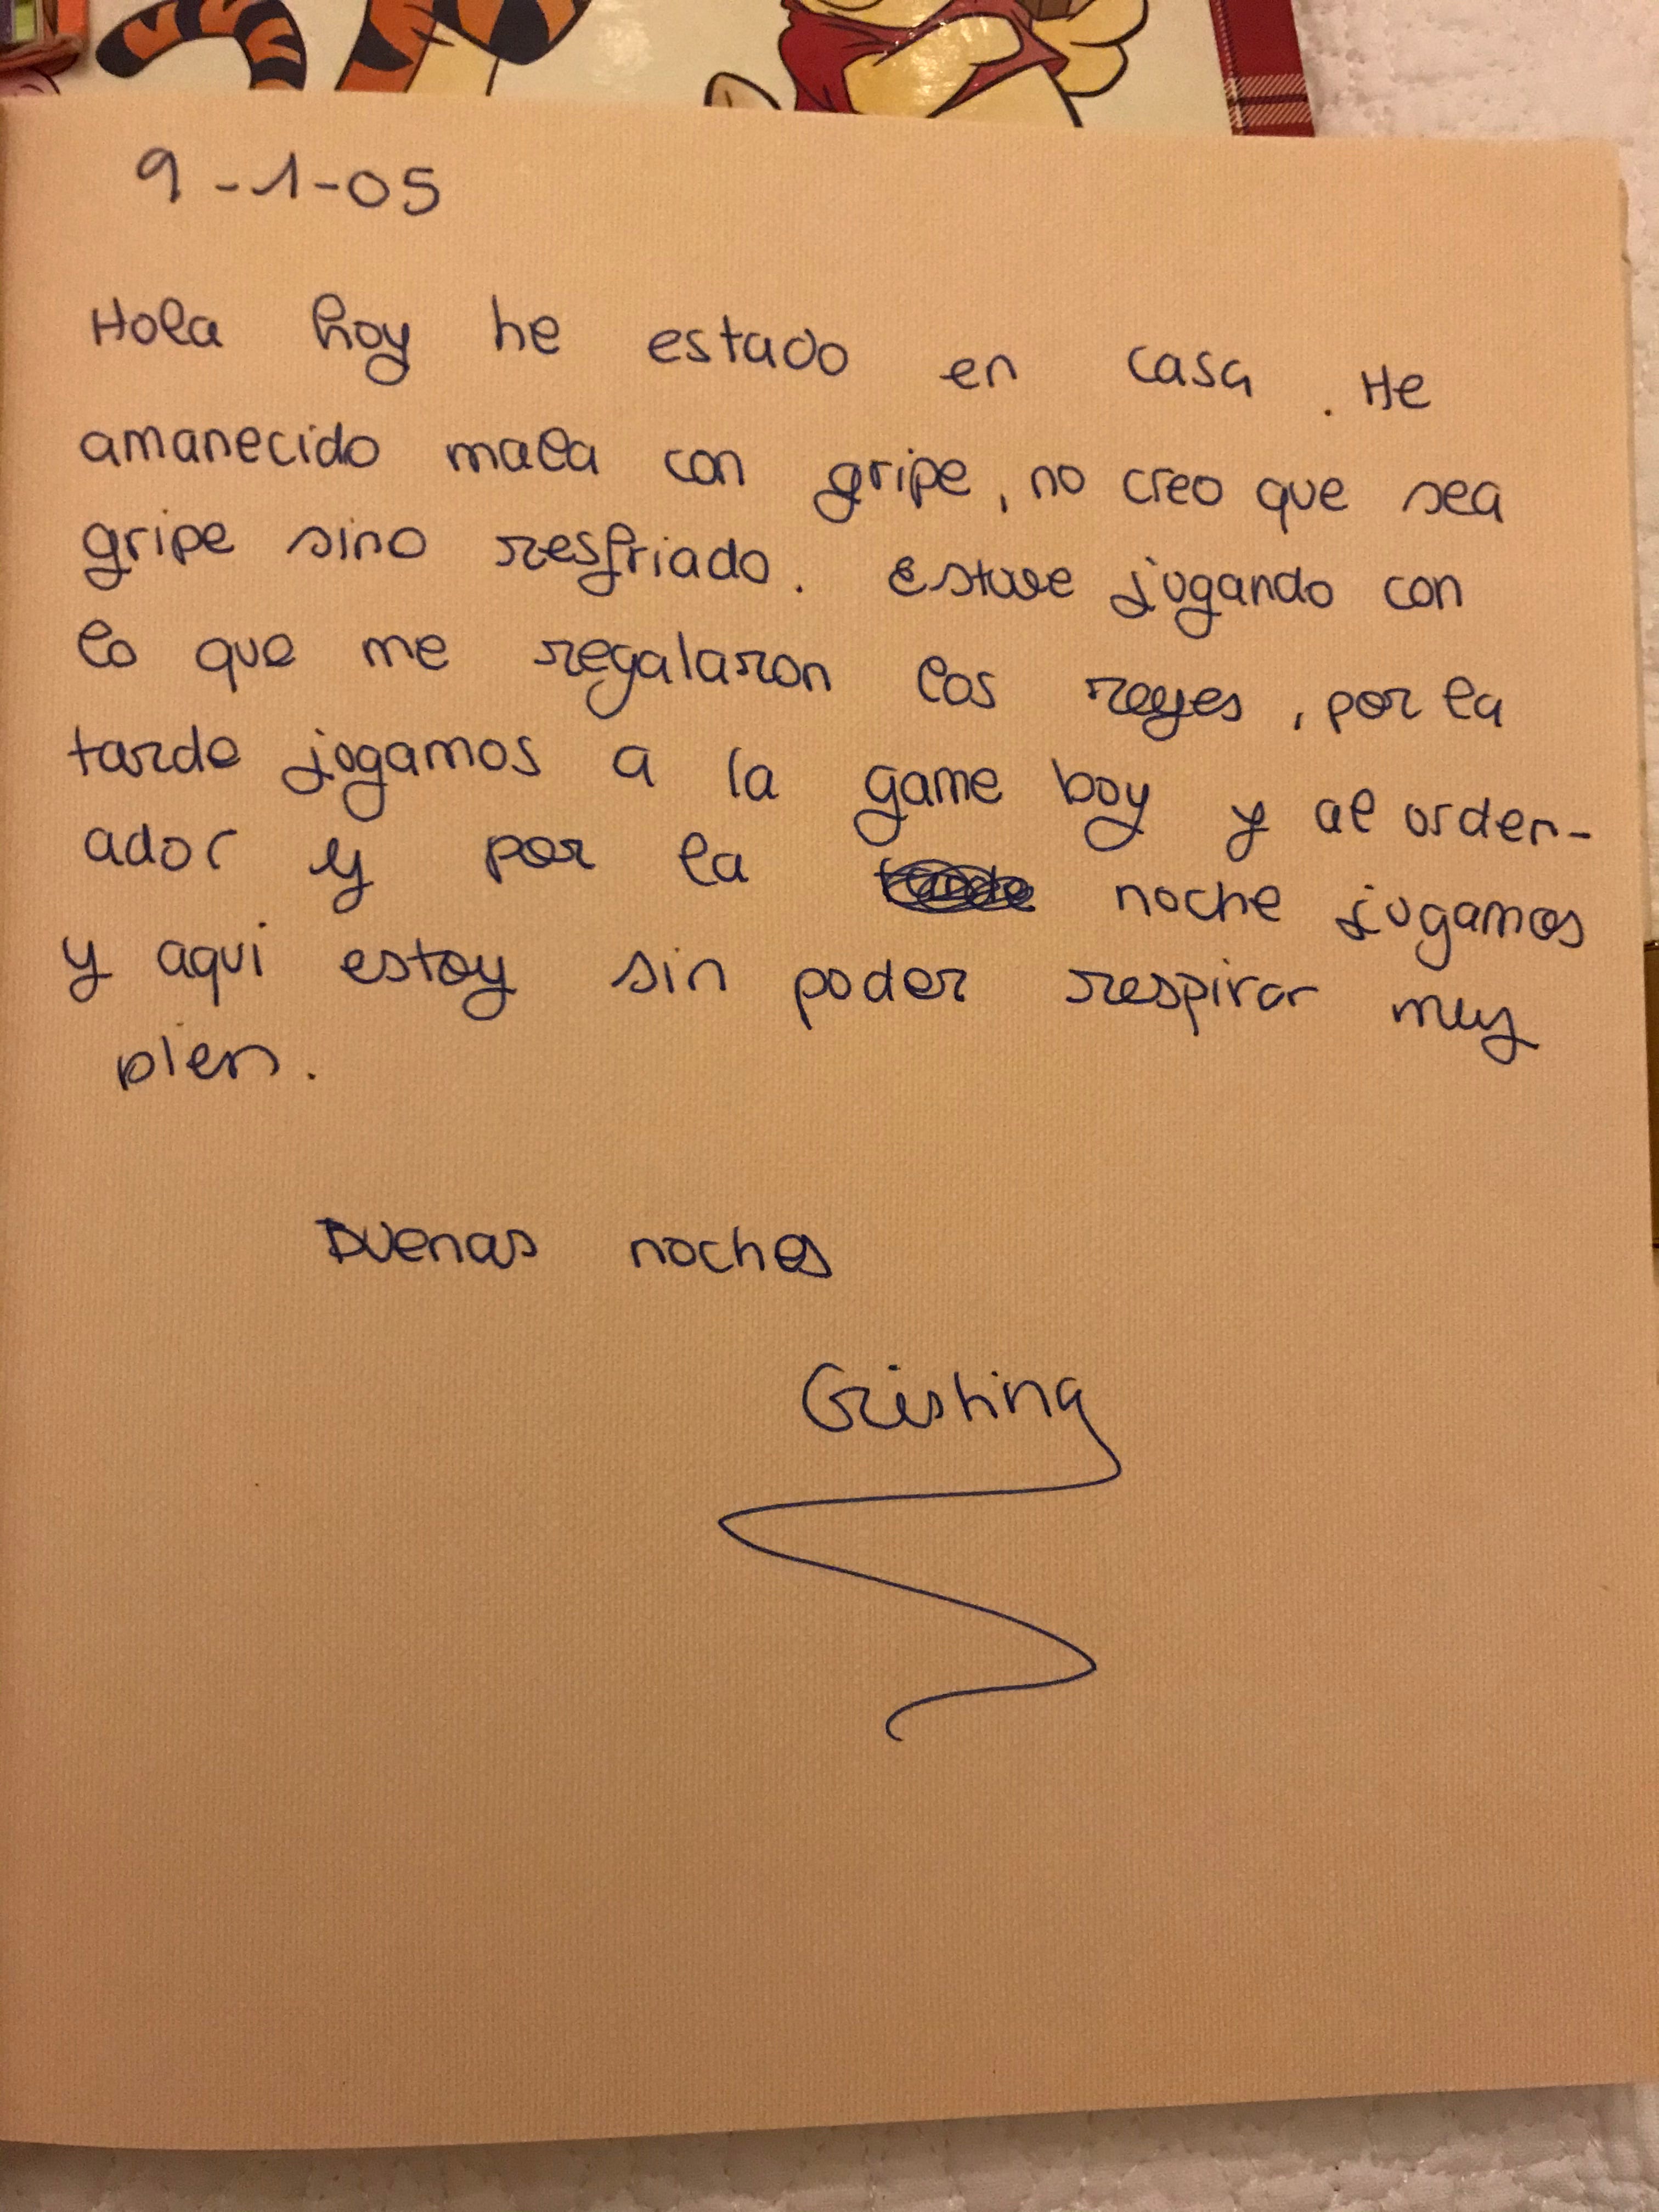 9-1-05
Hola hoy he estado en casa. He
amanecido mala con gripe, no creo que sea
gripe sino resfriado. Estuve jugando con
lo que me regalaron los reyes, por la
tarde jugamos a la game boy y al orden-
ador y por la tarde noche jugamos
y aqui estoy sin poder respirar muy
bien.
Buenas noches
Cristina